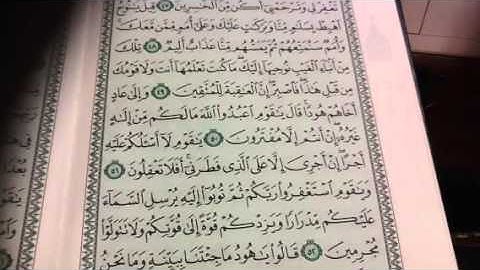 تَغْفِرْ لِى وَتَرْحَمْنِىٓ أَكُن مِّنَ ٱلْخَٰسِرِينَ ٤٧ قِيلَ يَٰنُوحُ
ٱهْبِطْ بِسَلَٰمٍ مِّنَّا وَبَرَكَٰتٍ عَلَيْكَ وَعَلَىٰٓ أُمَمٍ مِّمَّن مَّعَكَ ۚ
وَأُمَمٌ سَنُمَتِّعُهُمْ ثُمَّ يَمَسُّهُم مِّنَّا عَذَابٌ أَلِيمٌ ٤٨ تِلْكَ
مِنْ أَنۢبَآءِ ٱلْغَيْبِ نُوحِيهَآ إِلَيْكَ ۖ مَا كُنتَ تَعْلَمُهَآ أَنتَ وَلَا قَوْمُكَ
مِن قَبْلِ هَٰذَا ۖ فَٱصْبِرْ ۖ إِنَّ ٱلْعَٰقِبَةَ لِلْمُتَّقِينَ ٤٩ وَإِلَىٰ عَادٍ
أَخَاهُمْ هُودًا ۚ قَالَ يَٰقَوْمِ ٱعْبُدُوا۟ ٱللَّهَ مَا لَكُم مِّنْ إِلَٰهٍ
غَيْرُهُۥٓ ۖ إِنْ أَنتُمْ إِلَّا مُفْتَرُونَ ٥٠ يَٰقَوْمِ لَآ أَسْـَٔلُكُمْ عَلَيْهِ
أَجْرًا ۖ إِنْ أَجْرِىَ إِلَّا عَلَى ٱلَّذِى فَطَرَنِىٓ ۚ أَفَلَا تَعْقِلُونَ ٥١
وَيَٰقَوْمِ ٱسْتَغْفِرُوا۟ رَبَّكُمْ ثُمَّ تُوبُوٓا۟ إِلَيْهِ يُرْسِلِ ٱلسَّمَآءَ
عَلَيْكُم مِّدْرَارًا وَيَزِدْكُمْ قُوَّةً إِلَىٰ قُوَّتِكُمْ وَلَا تَتَوَلَّوْا۟
مُجْرِمِينَ ٥٢ قَالُوا۟ يَٰهُودُ مَا جِئْتَنَا بِبَيِّنَةٍ وَمَا نَحْنُ